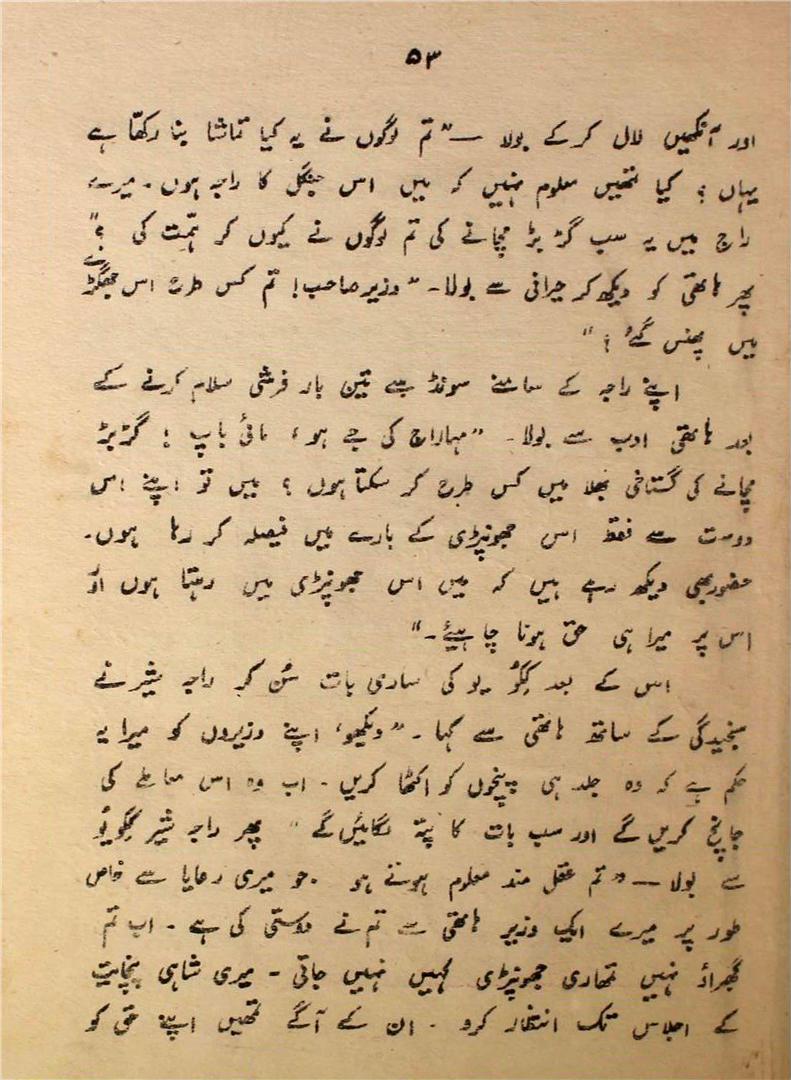 ۵۳
اور آنکھیں لال کر کے بولا — "تم لوگوں نے یہ کیا تماشا بنا رکھّا ہے
یہاں ؟ کیا تمھیں معلوم نہیں کہ میں اس جنگل کا راجہ ہوں ۔ میرے
راج میں یہ سب گڑ بڑ مچانے کی تم لوگوں نے کیوں کر ہمّت کی ؟"
پھر ہاتھی کو دیکھ کر حیرانی سے بولا ۔ "وزیر صاحب! تم کس طرح اس جھگڑے
میں پھنس گئے ؟"
اپنے راجہ کے سامنے سونڈ سے تین بار فرشی سلام کرنے کے
بعد ہاتھی ادب سے بولا ۔ "مہاراج کی جے ہو، مائی باپ ! گڑبڑ
مچانے کی گستاخی بھلا میں کس طرح کر سکتا ہوں ؟ میں تو اپنے اس
دوست سے فقط اس جھونپڑی کے بارے میں فیصلہ کر رہا ہوں ۔
حضور بھی دیکھ رہے ہیں کہ میں اس جھونپڑی میں رہتا ہوں اور
اس پر میرا ہی حق ہونا چاہیئے ۔"
اس کے بعد کِکُو یو کی ساری بات سُن کر راجہ شیر نے
سنجیدگی کے ساتھ ہاتھی سے کہا ۔ "دیکھو، اپنے وزیروں کو میرا یہ
حکم ہے کہ وہ جلد ہی پنچوں کو اکٹھا کریں ۔ اب وہ اس معاملے کی
جانچ کریں گے اور سب بات کا پتہ لگائیں گے" پھر راجہ شیر کِکُویُو
سے بولا — "تم عقل مند معلوم ہوتے ہو ۔ جو میری رعایا سے خاص
طور پر میرے ایک وزیر ہاتھی سے تم نے دوستی کی ہے ۔ اب تم
گھبراؤ نہیں تمھاری جھونپڑی کہیں نہیں جاتی ۔ میری شاہی پنچایت
کے اجلاس تک انتظار کرو ۔ ان کے آگے تمھیں اپنے حق کو